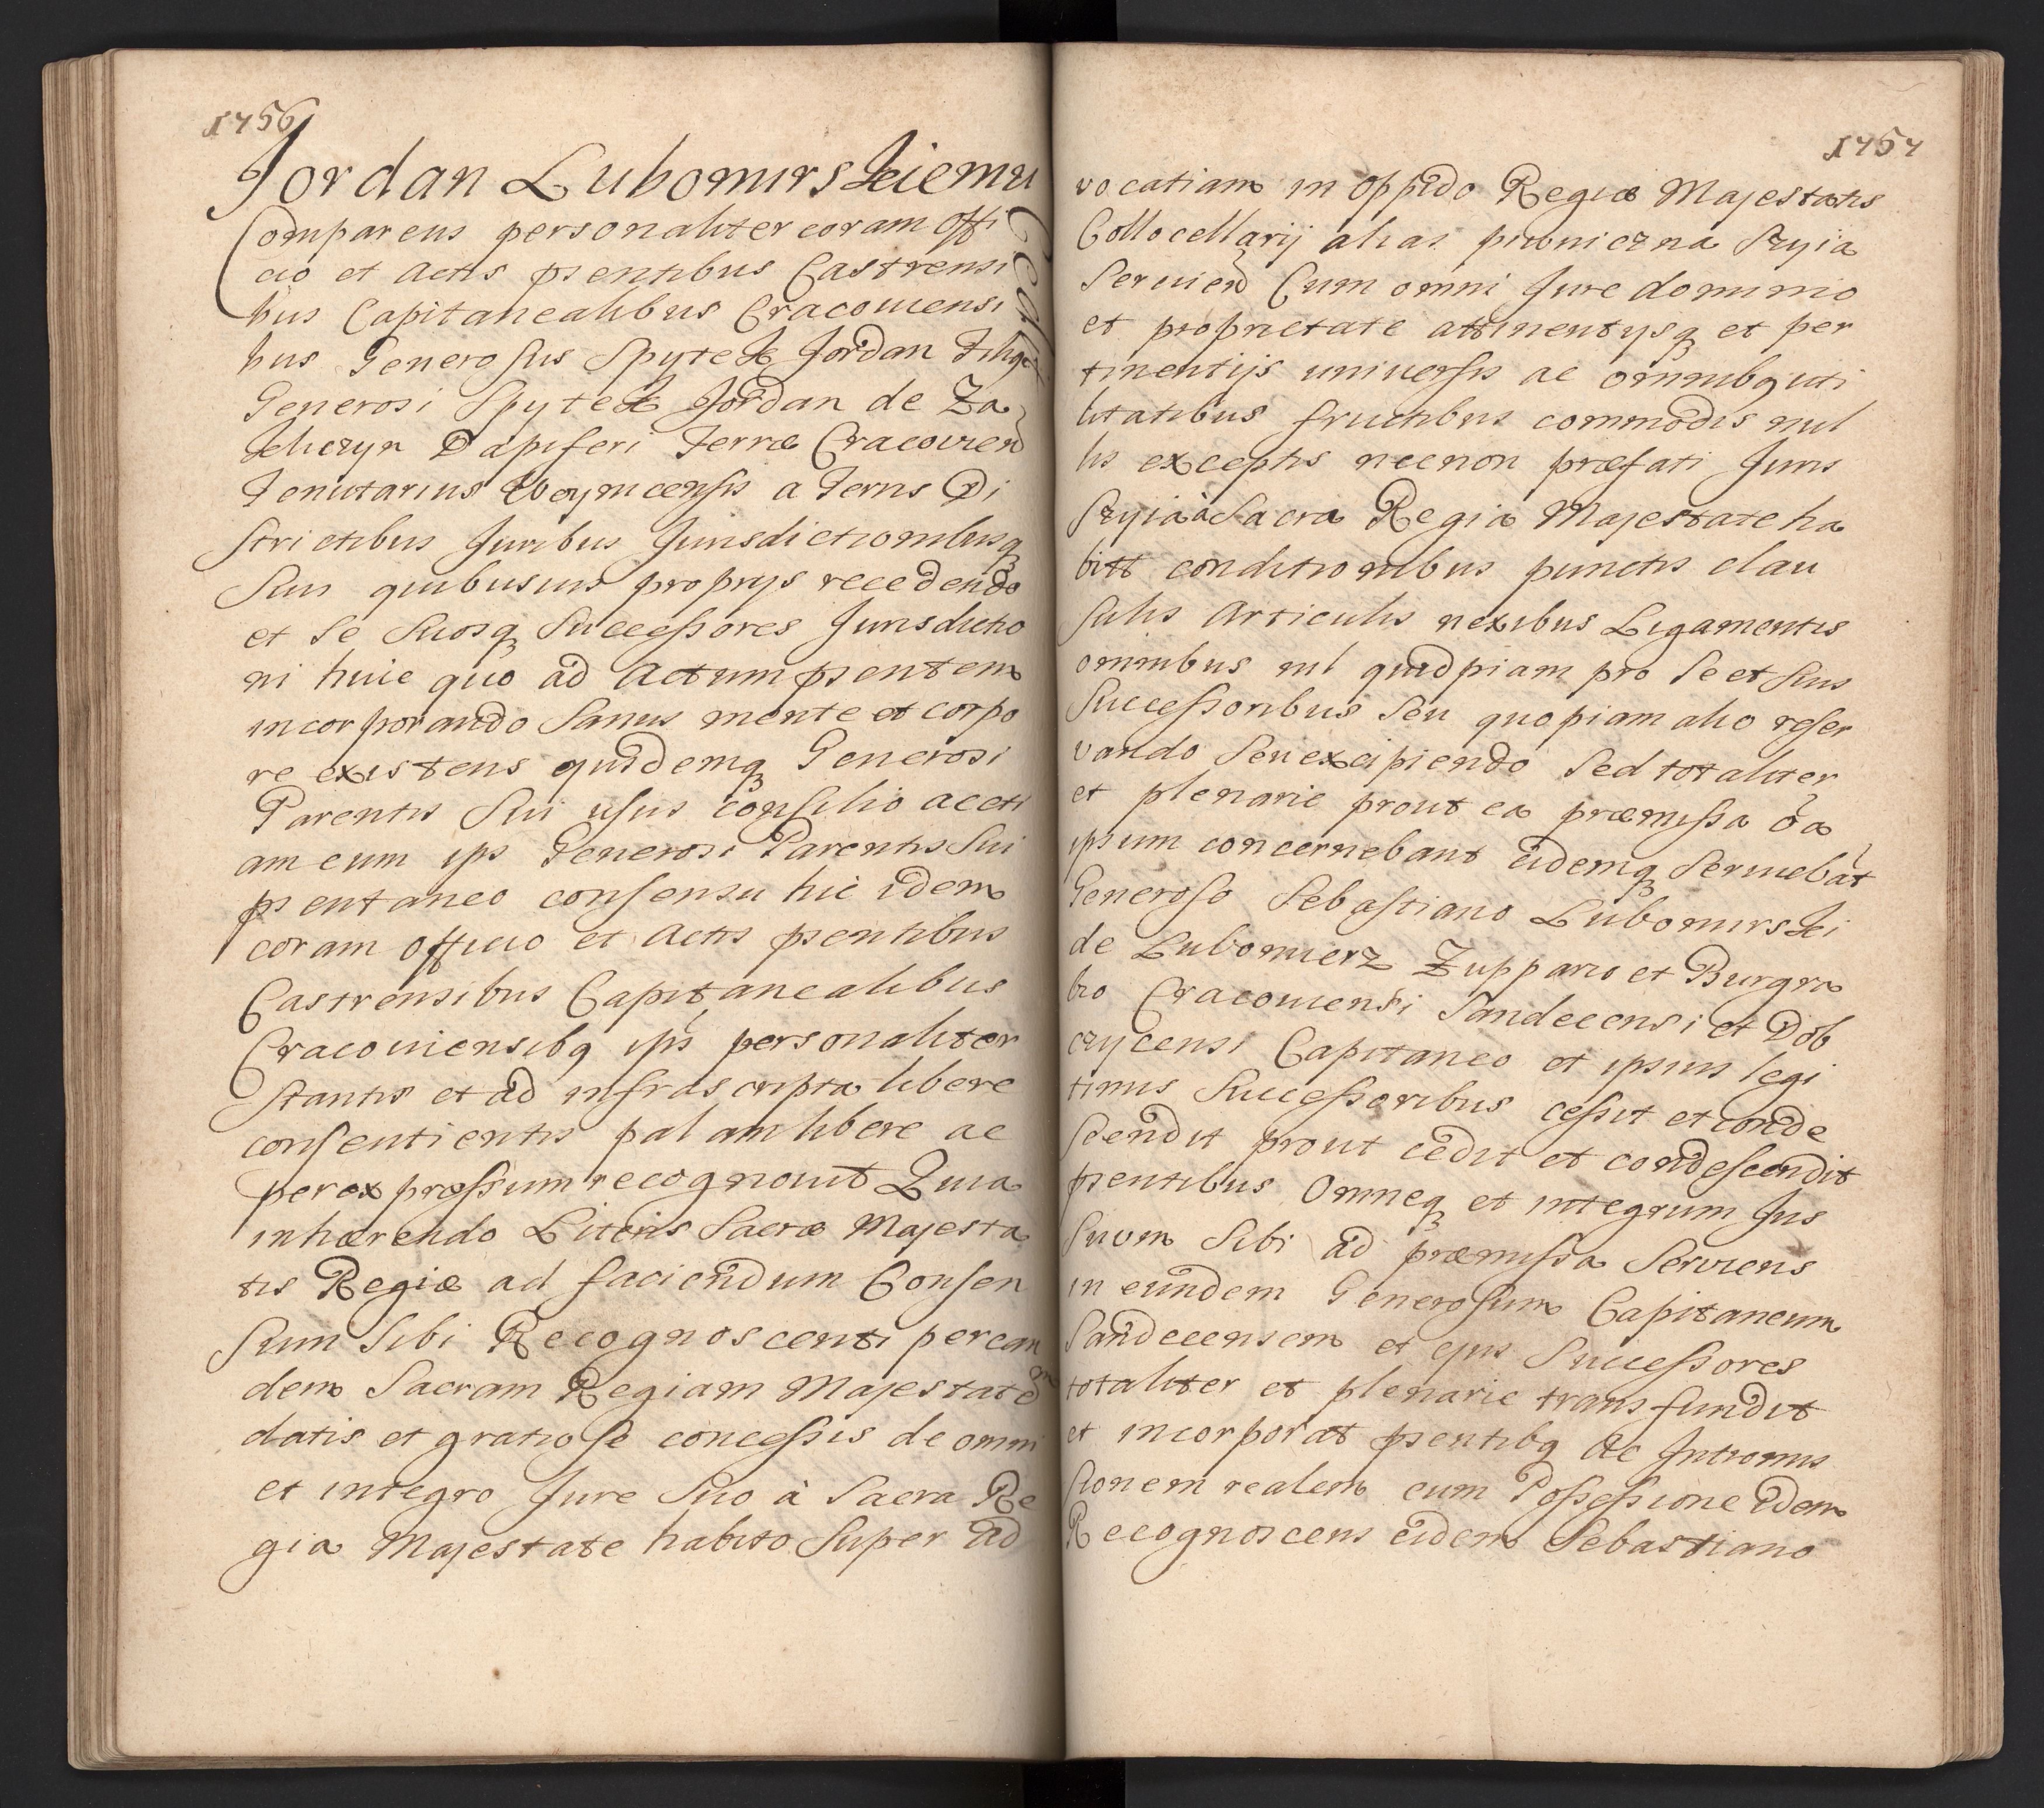 1456
Jordan Lubomirskiemu
Comparens personaliter coram offi
cio et Actis psentibus Castrensi
bus Capitanealibus Cracoviensi
bus Generosus Spytek Jordan filius
Generosi Spytek Jordan de Za
kliczyn Dapiferi Terræ Cracovien
Tenutarius Woynicensis a Terris Di
strictibus Juribus Jurisdictionibusq
suis quibusuis proprys recedendo
et se suosq Successores Jurisdictio
ni huic quo ad Actum psentem
incorporando sanus mente et corpo
re existens quidemq Generosi
Parentis sui usus consilio aceti
am cum ips Generosi Parentis sui
psentaneo consensu hic idem
coram officio et Actis psentibus
Castrensibus Capitanealibus
Cracoviensibq ips personaliter
stantis et ad infrascripta libere
consentientis palam libere ac
per expressum recognovit Quia
inhærendo Literis Sacræ Majesta
tis Regiæ ad faciendum Consen
sum sibi Recognoscenti per ean
dem Sacram Regiam Majestatem
datis et gratiose concessis de omni
et integro Jure suo à Sacra Re
gia Majestate habito super Ad
1457
vocatiam in oppido Regiæ Majestatis
Collocellarij alias piwniczna Szyia
Servien Cum omni Jure dominio
et proprietate attinentysq et per
tinentijs universis ac omnibq uti
litatibus fructibus commodis nul
lis exceptis necnon præfati Juris
Szyia à Sacra Regia Majestate ha
bitt conditionibus punctis clau
sulis Articulis nexibus Ligamentis
omnibus nil quidpiam pro se et suis
Successoribus seu quopiam alio reser
vando seu excipiendo sed totaliter
et plenarie prout ea præmissa oa
ipsum concernebant eidemq serviebat
Generoso Sebastiano Lubomirski
de Lubomierz Zuppario et Burgra
bio Cracoviensi Sandecensi et Dob
czycensi Capitaneo et ipsius legi
timis Successoribus cessit et conde
scendit prout cedit et condescendit
psentibus Omneq et integrum Jus
suum sibi ad præmissa serviens
in eundem Generosum Capitaneum
Sandecensem et ejus Successores
totaliter et plenarie transfundit
et incorporat psentibq Ac Intromis
sionem realem cum Possessione idem
Recognoscens eidem Sebastiano